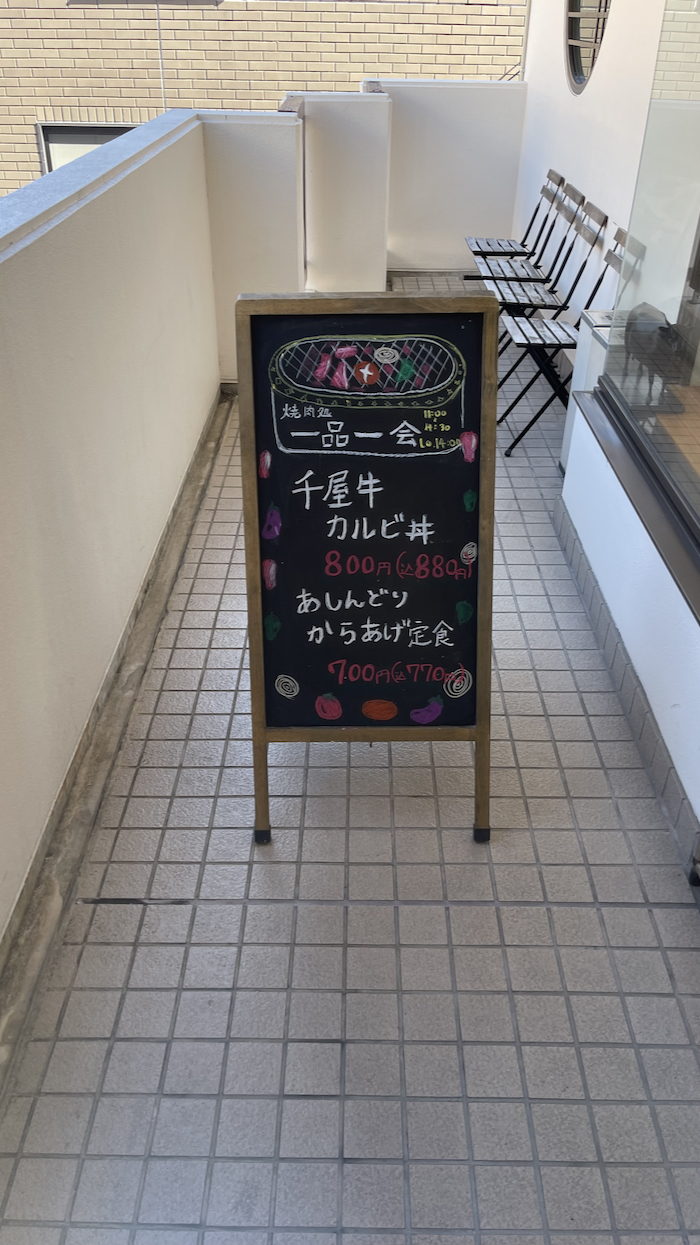 焼肉処
一品一会
11:00
14:30
L.o.14:00
千屋牛
カルビ丼
800円(込880円)
あしんどり
からあげ定食
700円(込770円)